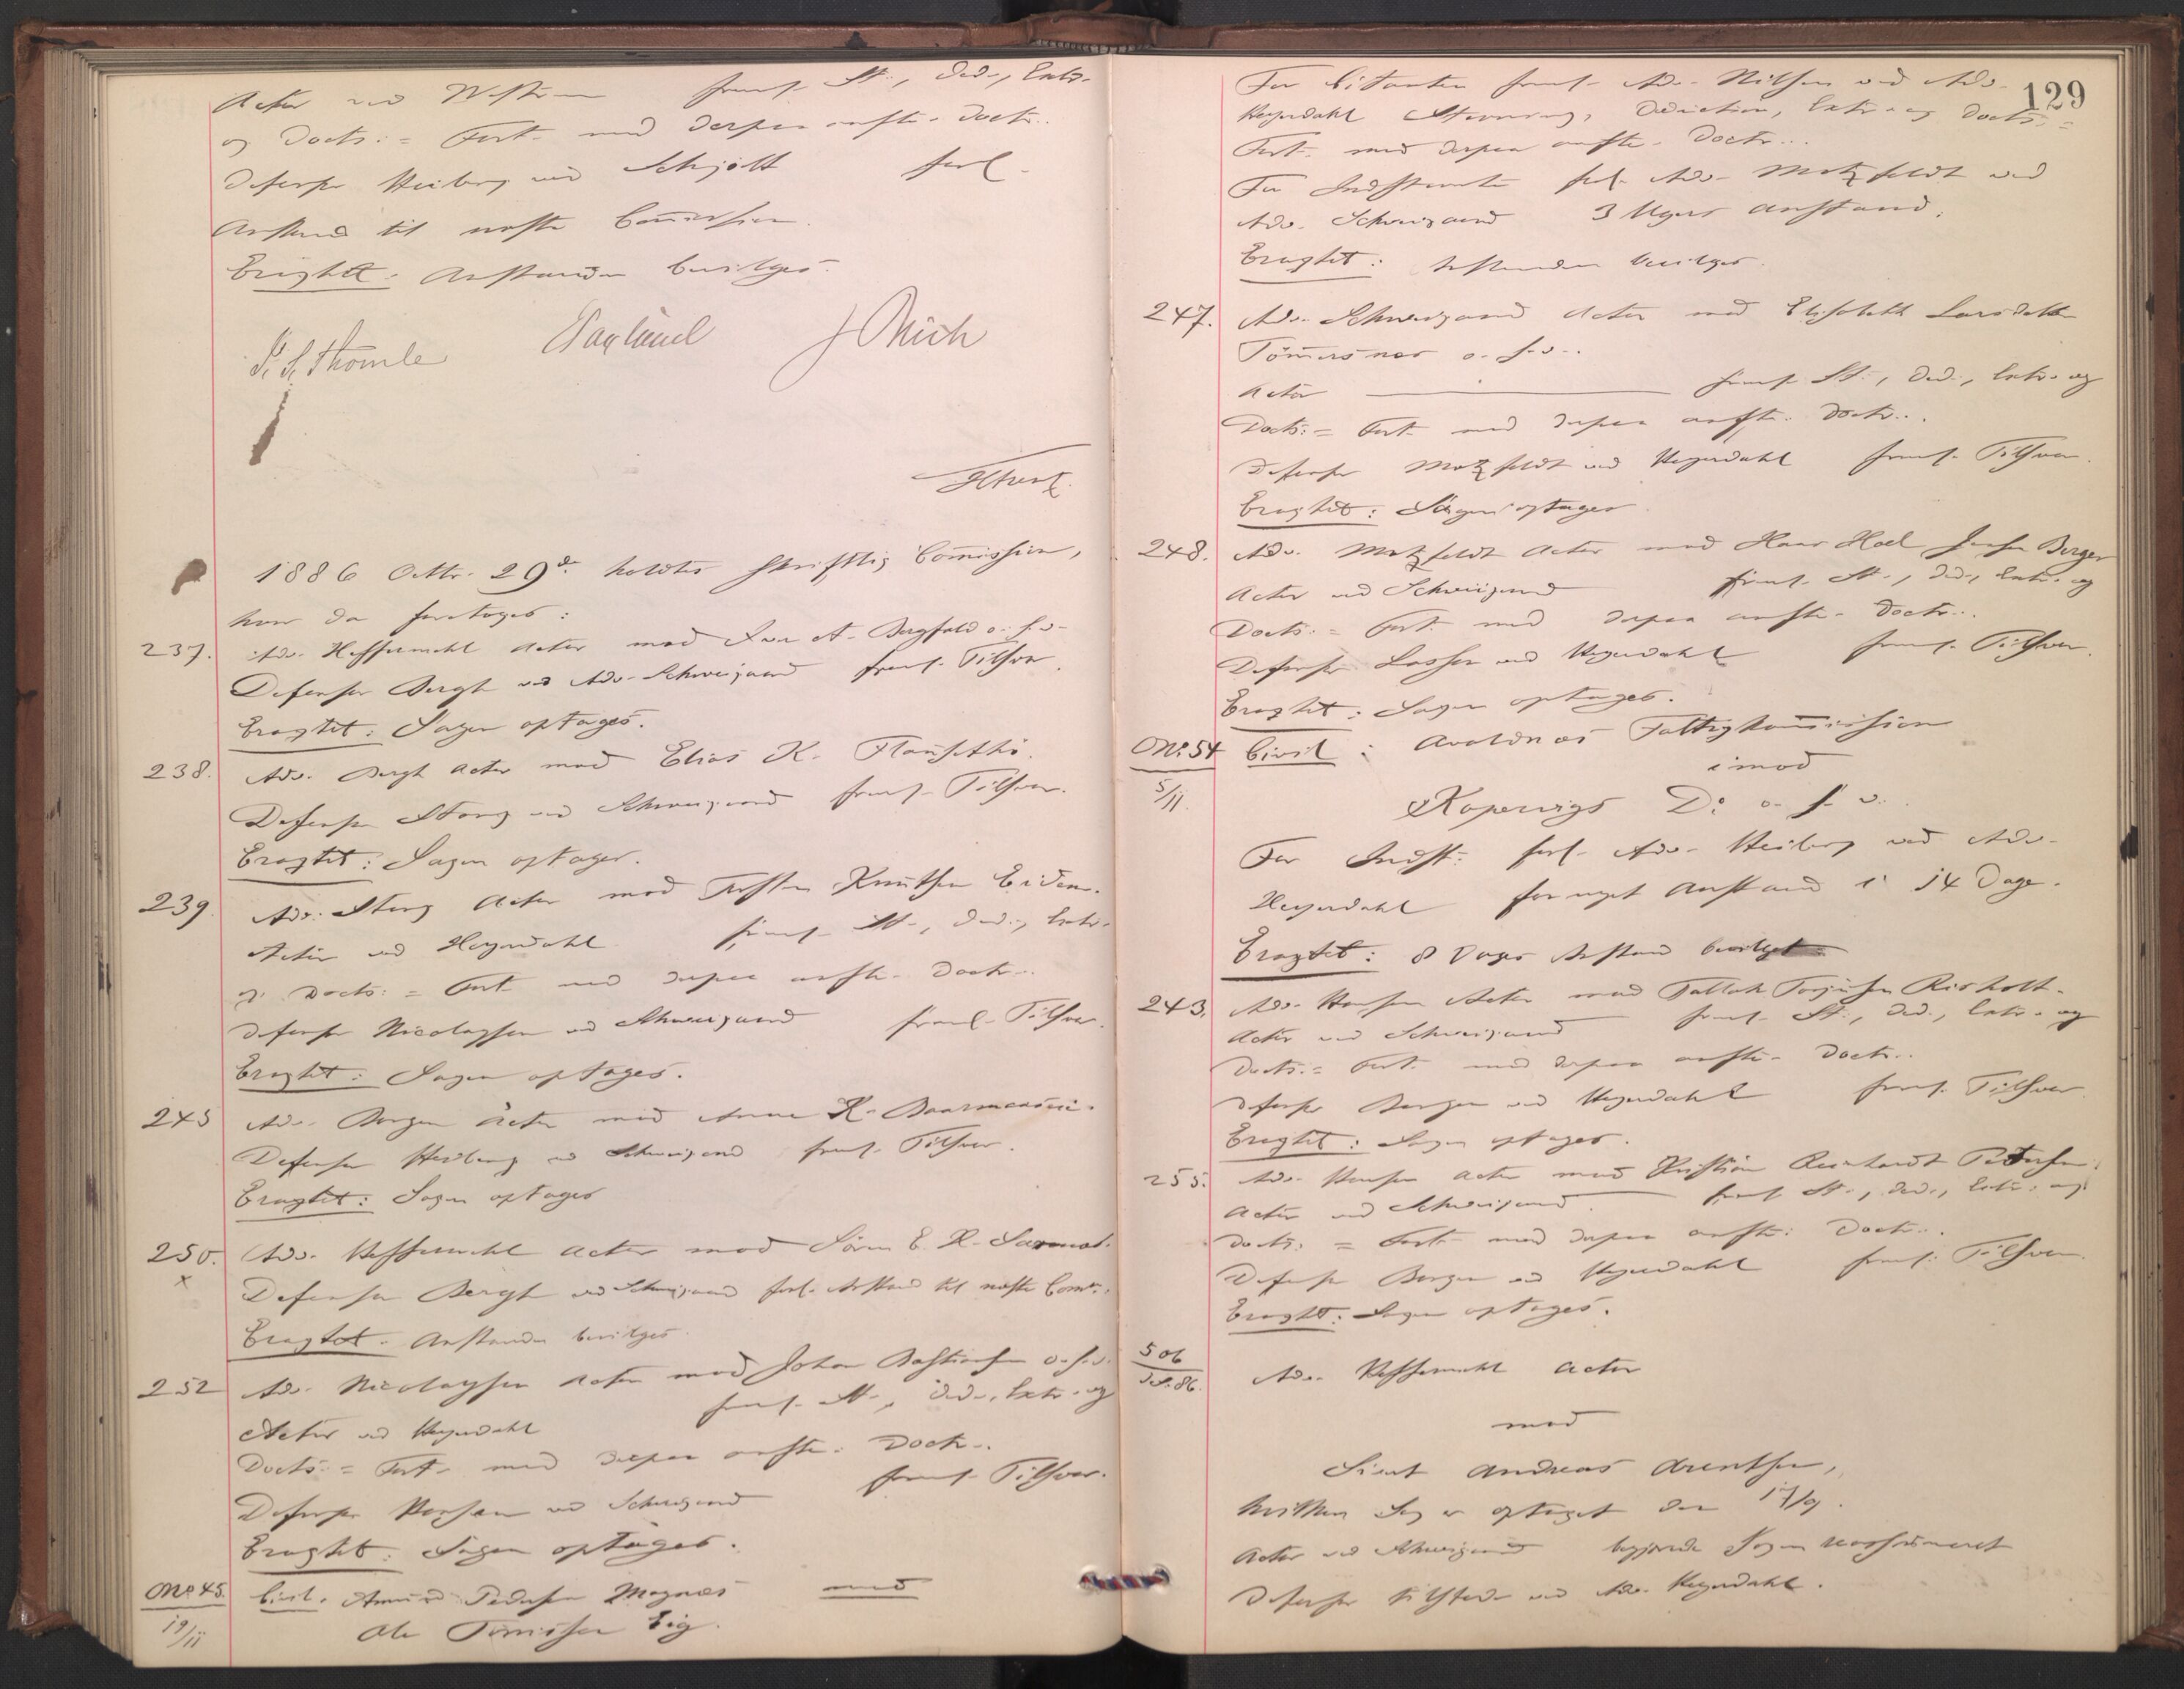 Actor ved Westrum freml. St., Ded., Extr.
og Docts: = Fort. med derpaa anfte. Doctr..
Defensor Heiberg ved Schjött forl.
Anstand til næste Commission.
Eragtet. Anstanden bevilges.
Thomle
129
1886 Octbr. 29de. holdtes skriftlig Commission,
hvor da foretoges:
237. Adv. Hesselberg Actor mod A. Bergfald o. s. v.
Defensor Bergh ved Adv. Schweigaard freml. Tilsvar.
Eragtet: Sagen optages.
238. Adv. Bergh Actor mod Elias K.
Defensor Stang ved Schweigaard freml. Tilsvar.
Eragtet: Sagen optages.
239. Adv. Stang Actor mod Knutsen
Actor ved Heyerdahl freml. St., Ded., Extr.
og Docts: = Fort. med derpaa anfte. Doctr..
Defensor Nicolaysen ved Schweigaard freml. Tilsvar.
Eragtet: Sagen optages.
245 Adv. Berger Actor mod Anne K.
Defensor Heiberg ved Schweigaard freml. Tilsvar.
Eragtet: Sagen optages
250. Adv. Actor mod Sören E. K.
x
Defensor Bergh ved Schweigaard forl. Anstand til næste Comm.
Eragtet. Anstanden bevilges.
252 Adv. Nicolaysen Actor mod Johan Bastiansen o. s. v.
Actor ved Heyerdahl freml. St., Ded., Extr. og
Docts: = Fort. med derpaa anfte. Doctr..
Defensor Hansen ved Schweigaard freml. Tilsvar.
Eragtet: Sagen optages.
No. 45. Civil. Amund Pedersen Mognæs mod
19/11 Ole Eig.
For Citanten freml. Adv. Nilsen ved Adv.
Heyerdahl Stevning, Deduction, Extr. og Docts: =
Fort. med derpaa anfte. Doctr...
For Indstevnte forl. Adv. Motzfeldt ved
Adv. Schweigaard 3 Ugers Anstand.
Eragtet: Anstanden bevilges.
247. Adv. Schweigaard Actor mod Elisabeth Larsdatter
Tömmernes o. s. v..
Actor freml. St., Ded., Extr. og
Docts: = Fort. med derpaa anfte. Doctr..
Defensor Motzfeldt ved Heyerdahl freml. Tilsvar.
Eragtet: Sagen optages
248. Adv. Motzfeldt Actor mod Hans Hoel Jensen Berger
Actor ved Schweigaard freml. St., Ded., Extr. og
Docts: = Fort. med derpaa anfte. Doctr..
Defensor Lassen ved Heyerdahl freml. Tilsvar.
Eragtet: Sagen optages.
No. 54 Civil: Avaldnæs Fattigkommission
imod
5/11. Kopervigs Do. o. s. v.
For Indst: forl. Adv. Heiberg ved Adv.
Heyerdahl fornyet Anstand i 14 Dage.
Eragtet: 8 Dages Anstand bevilget
243. Adv. Hansen Actor mod Tallak Torjusen Risholt.
Actor ved Schweigaard freml. St., Ded., Extr. og
Docts: = Fort. med derpaa anfte. Doctr..
Defensor Berger ved Heyerdahl freml. Tilsvar.
Eragtet: Sagen optages.
255. Adv. Hansen Actor mod Kristian Reinhardt Petersen.
Actor ved Schweigaard freml. St., Ded., Extr. og
Docts: = Fort. med derpaa anfte. Doctr..
Defensor Berger ved Heyerdahl freml. Tilsvar.
Eragtet: Sagen optages.
506 Adv. Actor
mod
Andreas Arentsen,
hvilken Sag er optaget den 17/9.
Actor ved Schweigaard begjærede Sagen reassumeret
Defensor tilstede ved Adv. Heyerdahl.